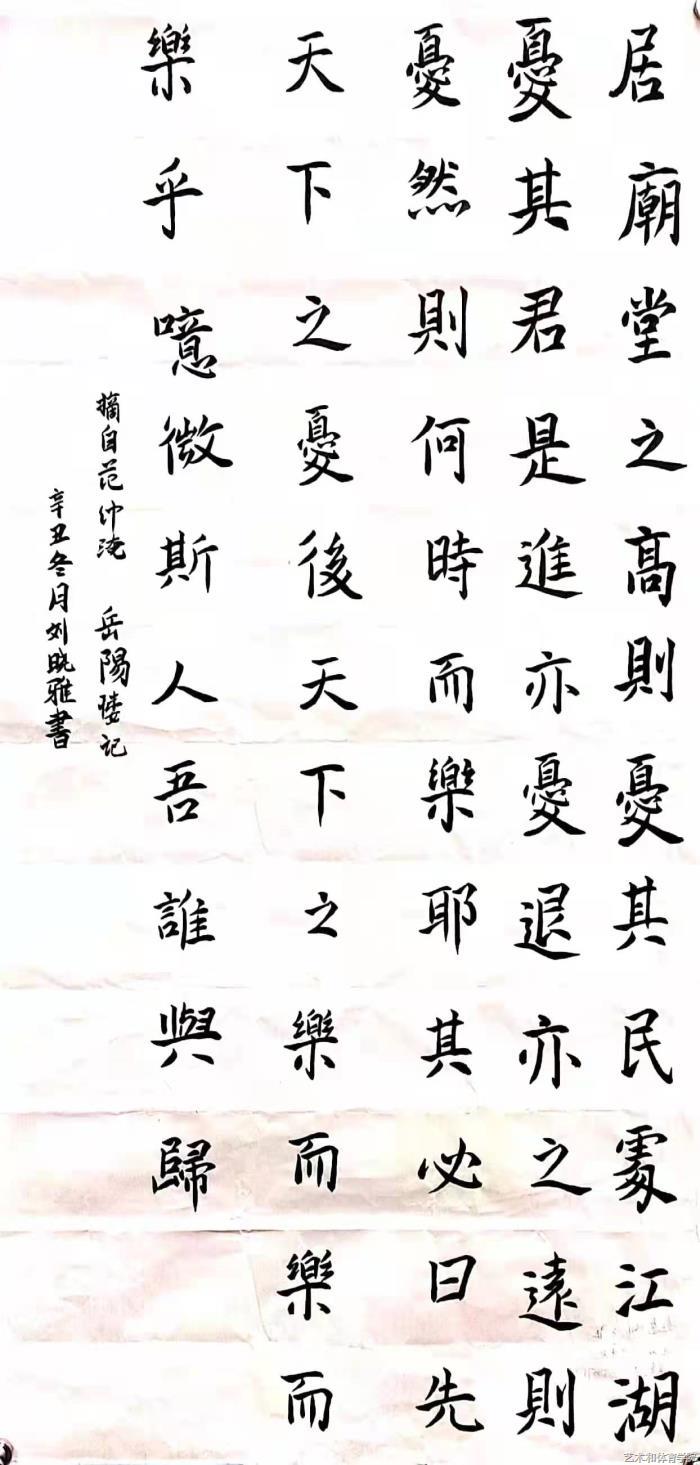 居廟堂之高則憂其民處江湖
憂其君是進亦憂退亦之遠則
憂然則何時而樂耶其必曰先
天下之憂後天下之樂而樂而
樂乎噫微斯人吾誰與歸
摘自范仲淹 岳陽楼记
辛丑冬月刘晓雅書
艺术和体育学院